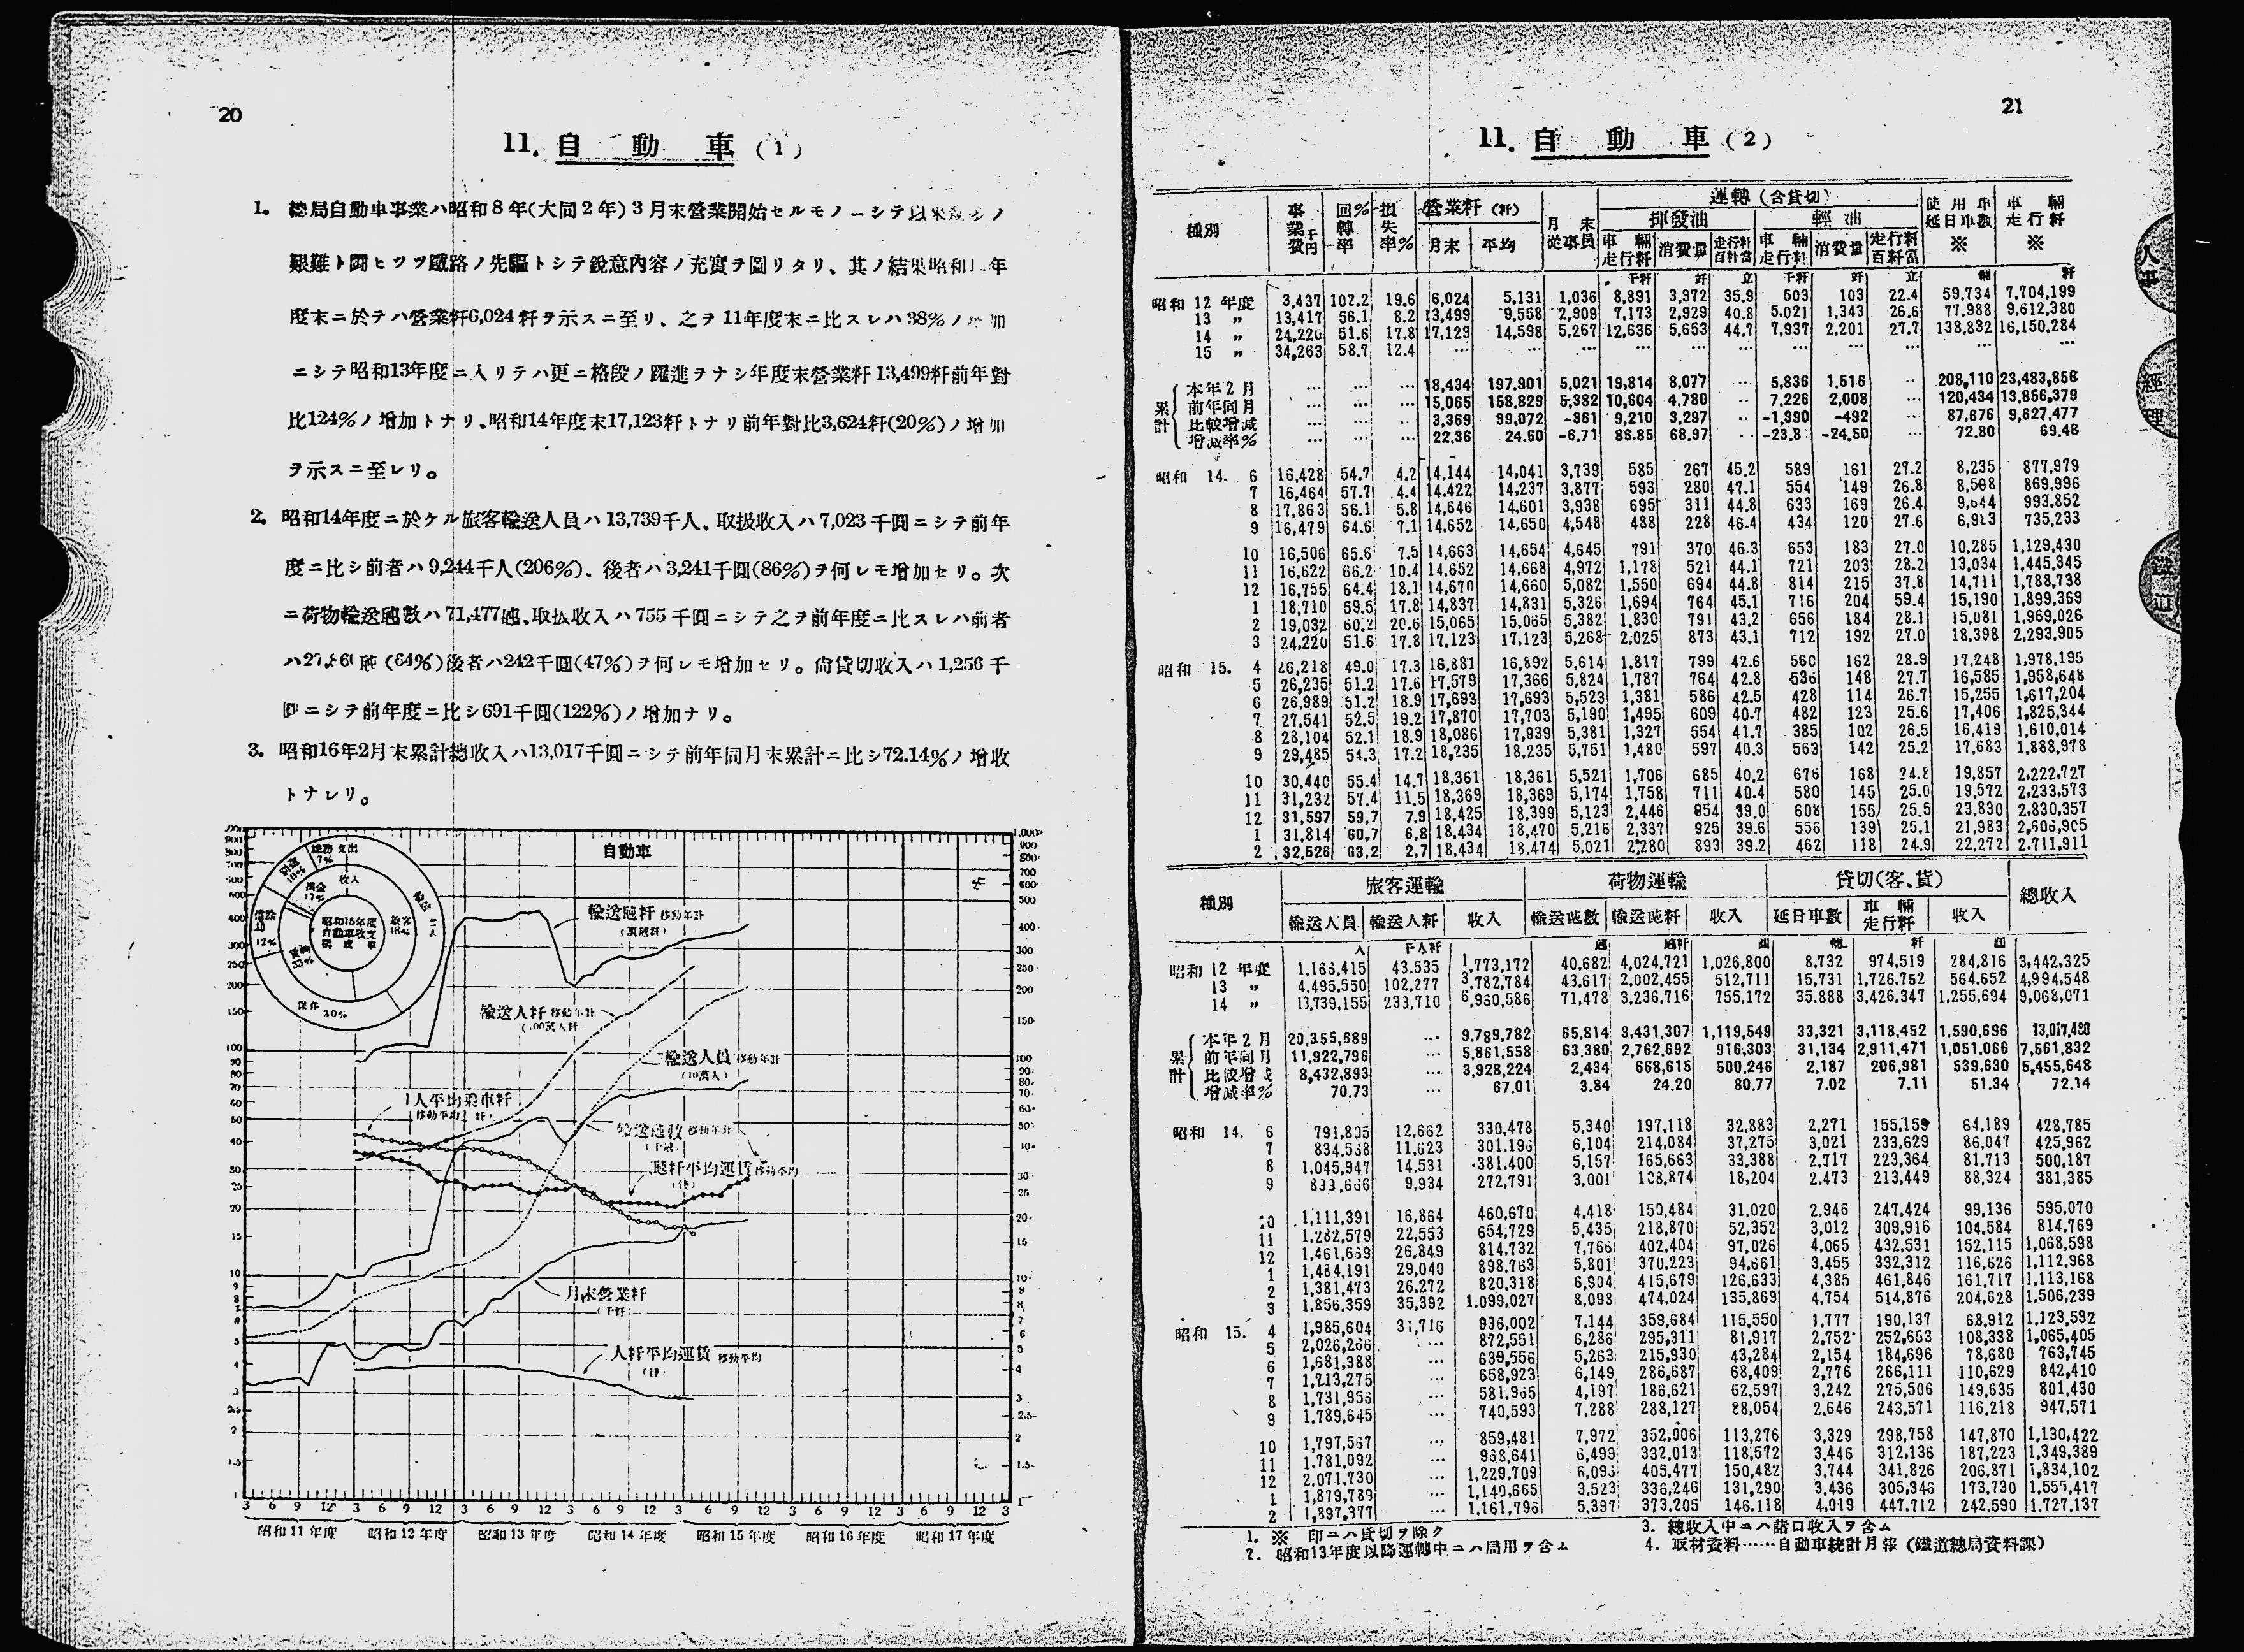 20
11. 自動車 (1)
1. 總局自動車事業ハ昭和8年(大同2年)3月末營業開始セルモノニシテ以來
艱難ト鬪ヒツツ鐵路ノ先驅トシテ鋭意內容ノ充實ヲ圖リタリ、其ノ結果昭和 年
度末ニ於テハ營業粁6,024粁ヲ示スニ至リ、之ヲ11年度末ニ比スレハ38%ノ 加
ニシテ昭和13年度ニ入リテハ更ニ格段ノ躍進ヲナシ年度末營業粁13,499粁前年對
比124%ノ增加トナリ、昭和14年度末17,123粁トナリ前年對比3,624粁(20%)ノ增加
ヲ示スニ至レリ。
2. 昭和14年度ニ於ケル旅客輸送人員ハ13,739千人、取扱收入ハ7,023千圓ニシテ前年
度ニ比シ前者ハ9,244千人(206%)、後者ハ3,241千圓(86%)ヲ何レモ增加セリ。次
ニ荷物輸送瓲數ハ71,477瓲、取扱收入ハ755千圓ニシテ之ヲ前年度ニ比スレハ前者
ハ 瓲(64%)後者ハ242千圓(47%)ヲ何レモ增加セリ。尙貸切收入ハ1,256千
圓ニシテ前年度ニ比シ691千圓(122%)ノ增加ナリ。
3. 昭和16年2月末累計總收入ハ13,017千圓ニシテ前年同月末累計ニ比シ72.14%ノ增收
トナレリ。
自動車
總務 支出
7%
收入
昭和15年度
自動車收支
構成率
保存 20%
輸送瓲粁 移動年計
(萬瓲粁)
輸送人粁 移動年計
(100萬人粁)
輸送人員 移動年計
(10萬人)
1人平均乘車粁
移動平均(粁)
輸送瓲數 移動年計
(千瓲)
瓲粁平均運賃 移動平均
(錢)
月末營業粁
(千粁)
人粁平均運賃 移動平均
(錢)
3 6 9 12 3 6 9 12 3 6 9 12 3 6 9 12 3 6 9 12 3 6 9 12 3 6 9 12 3
昭和11年度 昭和12年度 昭和13年度 昭和14年度 昭和15年度 昭和16年度 昭和17年度
21
11. 自動車 (2)
種別 事業費千円 回轉率% 損失率% 營業粁(粁) 月末從事員 運轉(含貸切) 使用車延日車數※ 車輛走行粁※
月末 平均 揮發油 輕油
車輛走行粁 消費量 走行粁百粁當 車輛走行粁 消費量 走行粁百粁當
千粁 竏 立 千粁 竏 立 輛 粁
昭和12年度 3,437 102.2 19.6 6,024 5,131 1,036 8,891 3,372 35.9 503 103 22.4 59,734 7,704,199
13 〃 13,417 56.1 8.2 13,499 9,558 2,909 7,173 2,929 40.8 5,021 1,343 26.6 77,988 9,612,380
14 〃 24,220 51.6 17.8 17,123 14,598 5,267 12,636 5,653 44.7 7,937 2,201 27.7 138,832 16,150,284
15 〃 34,263 58.7 12.4 … … … … … … … … … … …
累計 本年2月 … … … 18,434 197,901 5,021 19,814 8,077 … 5,836 1,516 … 208,110 23,483,856
前年同月 … … … 15,065 158,829 5,382 10,604 4,780 … 7,226 2,008 … 120,434 13,856,379
比較增減 … … … 3,369 39,072 -361 9,210 3,297 … -1,390 -492 … 87,676 9,627,477
增減率% … … … 22.36 24.60 -6.71 86.85 68.97 … -23.8 -24.50 … 72.80 69.48
昭和14. 6 16,428 54.7 4.2 14,144 14,041 3,739 585 267 45.2 589 161 27.2 8,235 877,979
7 16,464 57.7 4.4 14,422 14,237 3,877 593 280 47.1 554 149 26.8 8,508 869,996
8 17,863 56.1 5.8 14,646 14,601 3,938 695 311 44.8 633 169 26.4 993,852
9 16,479 64.6 7.1 14,652 14,650 4,548 488 228 46.4 434 120 27.6 735,233
10 16,506 65.6 7.5 14,663 14,654 4,645 791 370 46.3 653 183 27.0 10,285 1,129,430
11 16,622 66.2 10.4 14,652 14,668 4,972 1,178 521 44.1 721 203 28.2 13,034 1,445,345
12 16,755 64.4 18.1 14,670 14,660 5,082 1,550 694 44.8 814 215 37.8 14,711 1,788,738
1 18,710 59.5 17.8 14,837 14,831 5,326 1,694 764 45.1 716 204 59.4 15,190 1,899,369
2 19,032 60.2 20.6 15,065 15,065 5,382 1,830 791 43.2 656 184 28.1 15,081 1,969,026
3 24,220 51.6 17.8 17,123 17,123 5,268 2,025 873 43.1 712 192 27.0 18,398 2,293,905
昭和15. 4 26,218 49.0 17.3 16,881 16,892 5,614 1,817 799 42.6 560 162 28.9 17,248 1,978,195
5 26,235 51.2 17.6 17,579 17,366 5,824 1,787 764 42.8 536 148 27.7 16,585 1,958,648
6 26,989 51.2 18.9 17,693 17,693 5,523 1,381 586 42.5 428 114 26.7 15,255 1,617,204
7 27,541 52.5 19.2 17,870 17,703 5,190 1,495 609 40.7 482 123 25.6 17,406 1,825,344
8 28,104 52.1 18.9 18,086 17,939 5,381 1,327 554 41.7 385 102 26.5 16,419 1,610,014
9 29,485 54.3 17.2 18,235 18,235 5,751 1,480 597 40.3 563 142 25.2 17,683 1,888,978
10 30,440 55.4 14.7 18,361 18,361 5,521 1,706 685 40.2 676 168 24.8 19,857 2,222,727
11 31,232 57.4 11.5 18,369 18,369 5,174 1,758 711 40.4 580 145 25.0 19,572 2,233,573
12 31,597 59.7 7.9 18,425 18,399 5,123 2,446 954 39.0 608 155 25.5 23,830 2,830,357
1 31,814 60.7 6.8 18,434 18,470 5,216 2,337 925 39.6 556 139 25.1 21,983 2,606,905
2 32,526 63.2 2.7 18,434 18,474 5,021 2,280 893 39.2 462 118 24.9 22,272 2,711,911
種別 旅客運輸 荷物運輸 貸切(客、貨) 總收入
輸送人員 輸送人粁 收入 輸送瓲數 輸送瓲粁 收入 延日車數 車輛走行粁 收入
人 千人粁 瓲 瓲粁 圓 輛 粁 圓
昭和12年度 1,166,415 43,535 1,773,172 40,682 4,024,721 1,026,800 8,732 974,519 284,816 3,442,325
13 〃 4,495,550 102,277 3,782,784 43,617 2,002,455 512,711 15,731 1,726,752 564,652 4,994,548
14 〃 13,739,155 233,710 6,960,586 71,478 3,236,716 755,172 35,888 3,426,347 1,255,694 9,068,071
累計 本年2月 20,355,689 … 9,789,782 65,814 3,431,307 1,119,549 33,321 3,118,452 1,590,696 13,017,480
前年同月 11,922,796 … 5,861,558 63,380 2,762,692 916,303 31,134 2,911,471 1,051,066 7,561,832
比較增減 8,432,893 … 3,928,224 2,434 668,615 500,246 2,187 206,981 539,630 5,455,648
增減率% 70.73 … 67.01 3.84 24.20 80.77 7.02 7.11 51.34 72.14
昭和14. 6 791,805 12,662 330,478 5,340 197,118 32,883 2,271 155,159 64,189 428,785
7 834,538 11,623 301,196 6,104 214,084 37,275 3,021 233,629 86,047 425,962
8 1,045,947 14,531 381,400 5,157 165,663 33,388 2,717 223,364 81,713 500,187
9 833,666 9,934 272,791 3,001 18,204 2,473 213,449 88,324 381,385
10 1,111,391 16,864 460,670 4,418 150,484 31,020 2,946 247,424 99,136 595,070
11 1,282,579 22,553 654,729 5,435 218,870 52,352 3,012 309,916 104,584 814,769
12 1,461,669 26,849 814,732 7,766 402,404 97,026 4,065 432,531 152,115 1,068,598
1 1,484,191 29,040 898,763 5,801 370,223 94,661 3,455 332,312 116,626 1,112,968
2 1,381,473 26,272 820,318 6,904 415,679 126,633 4,385 461,846 161,717 1,113,168
3 1,856,359 35,392 1,099,027 8,098 474,024 135,869 4,754 514,876 204,628 1,506,239
昭和15. 4 1,985,604 31,716 936,002 7,144 359,684 115,550 1,777 190,137 68,912 1,123,532
5 2,026,266 … 872,551 6,286 295,311 81,917 2,752 252,653 108,338 1,065,405
6 1,681,388 … 639,556 5,263 215,930 43,284 2,154 184,696 78,680 763,745
7 1,713,275 … 658,923 6,149 286,687 68,409 2,776 266,111 110,629 842,410
8 1,731,956 … 581,965 4,197 186,621 62,597 3,242 275,506 149,635 801,430
9 1,789,645 … 740,593 7,288 288,127 88,054 2,646 243,571 116,218 947,571
10 1,797,567 … 859,481 7,972 352,006 113,276 3,329 298,758 147,870 1,130,422
11 1,781,092 … 968,641 6,499 332,013 118,572 3,446 312,136 187,223 1,349,389
12 2,071,730 … 1,229,709 6,093 405,477 150,482 3,744 341,826 206,871 1,834,102
1 1,879,789 … 1,149,665 3,523 336,246 131,290 3,436 305,346 173,730 1,555,417
2 1,897,377 … 1,161,796 5,397 373,205 146,118 4,019 447,712 242,590 1,727,137
1. ※ 印ニハ貸切ヲ除ク
2. 昭和13年度以降運轉中ニハ局用ヲ含ム
3. 總收入中ニハ諸口收入ヲ含ム
4. 取材資料……自動車統計月報(鐵道總局資料課)
人事
經理